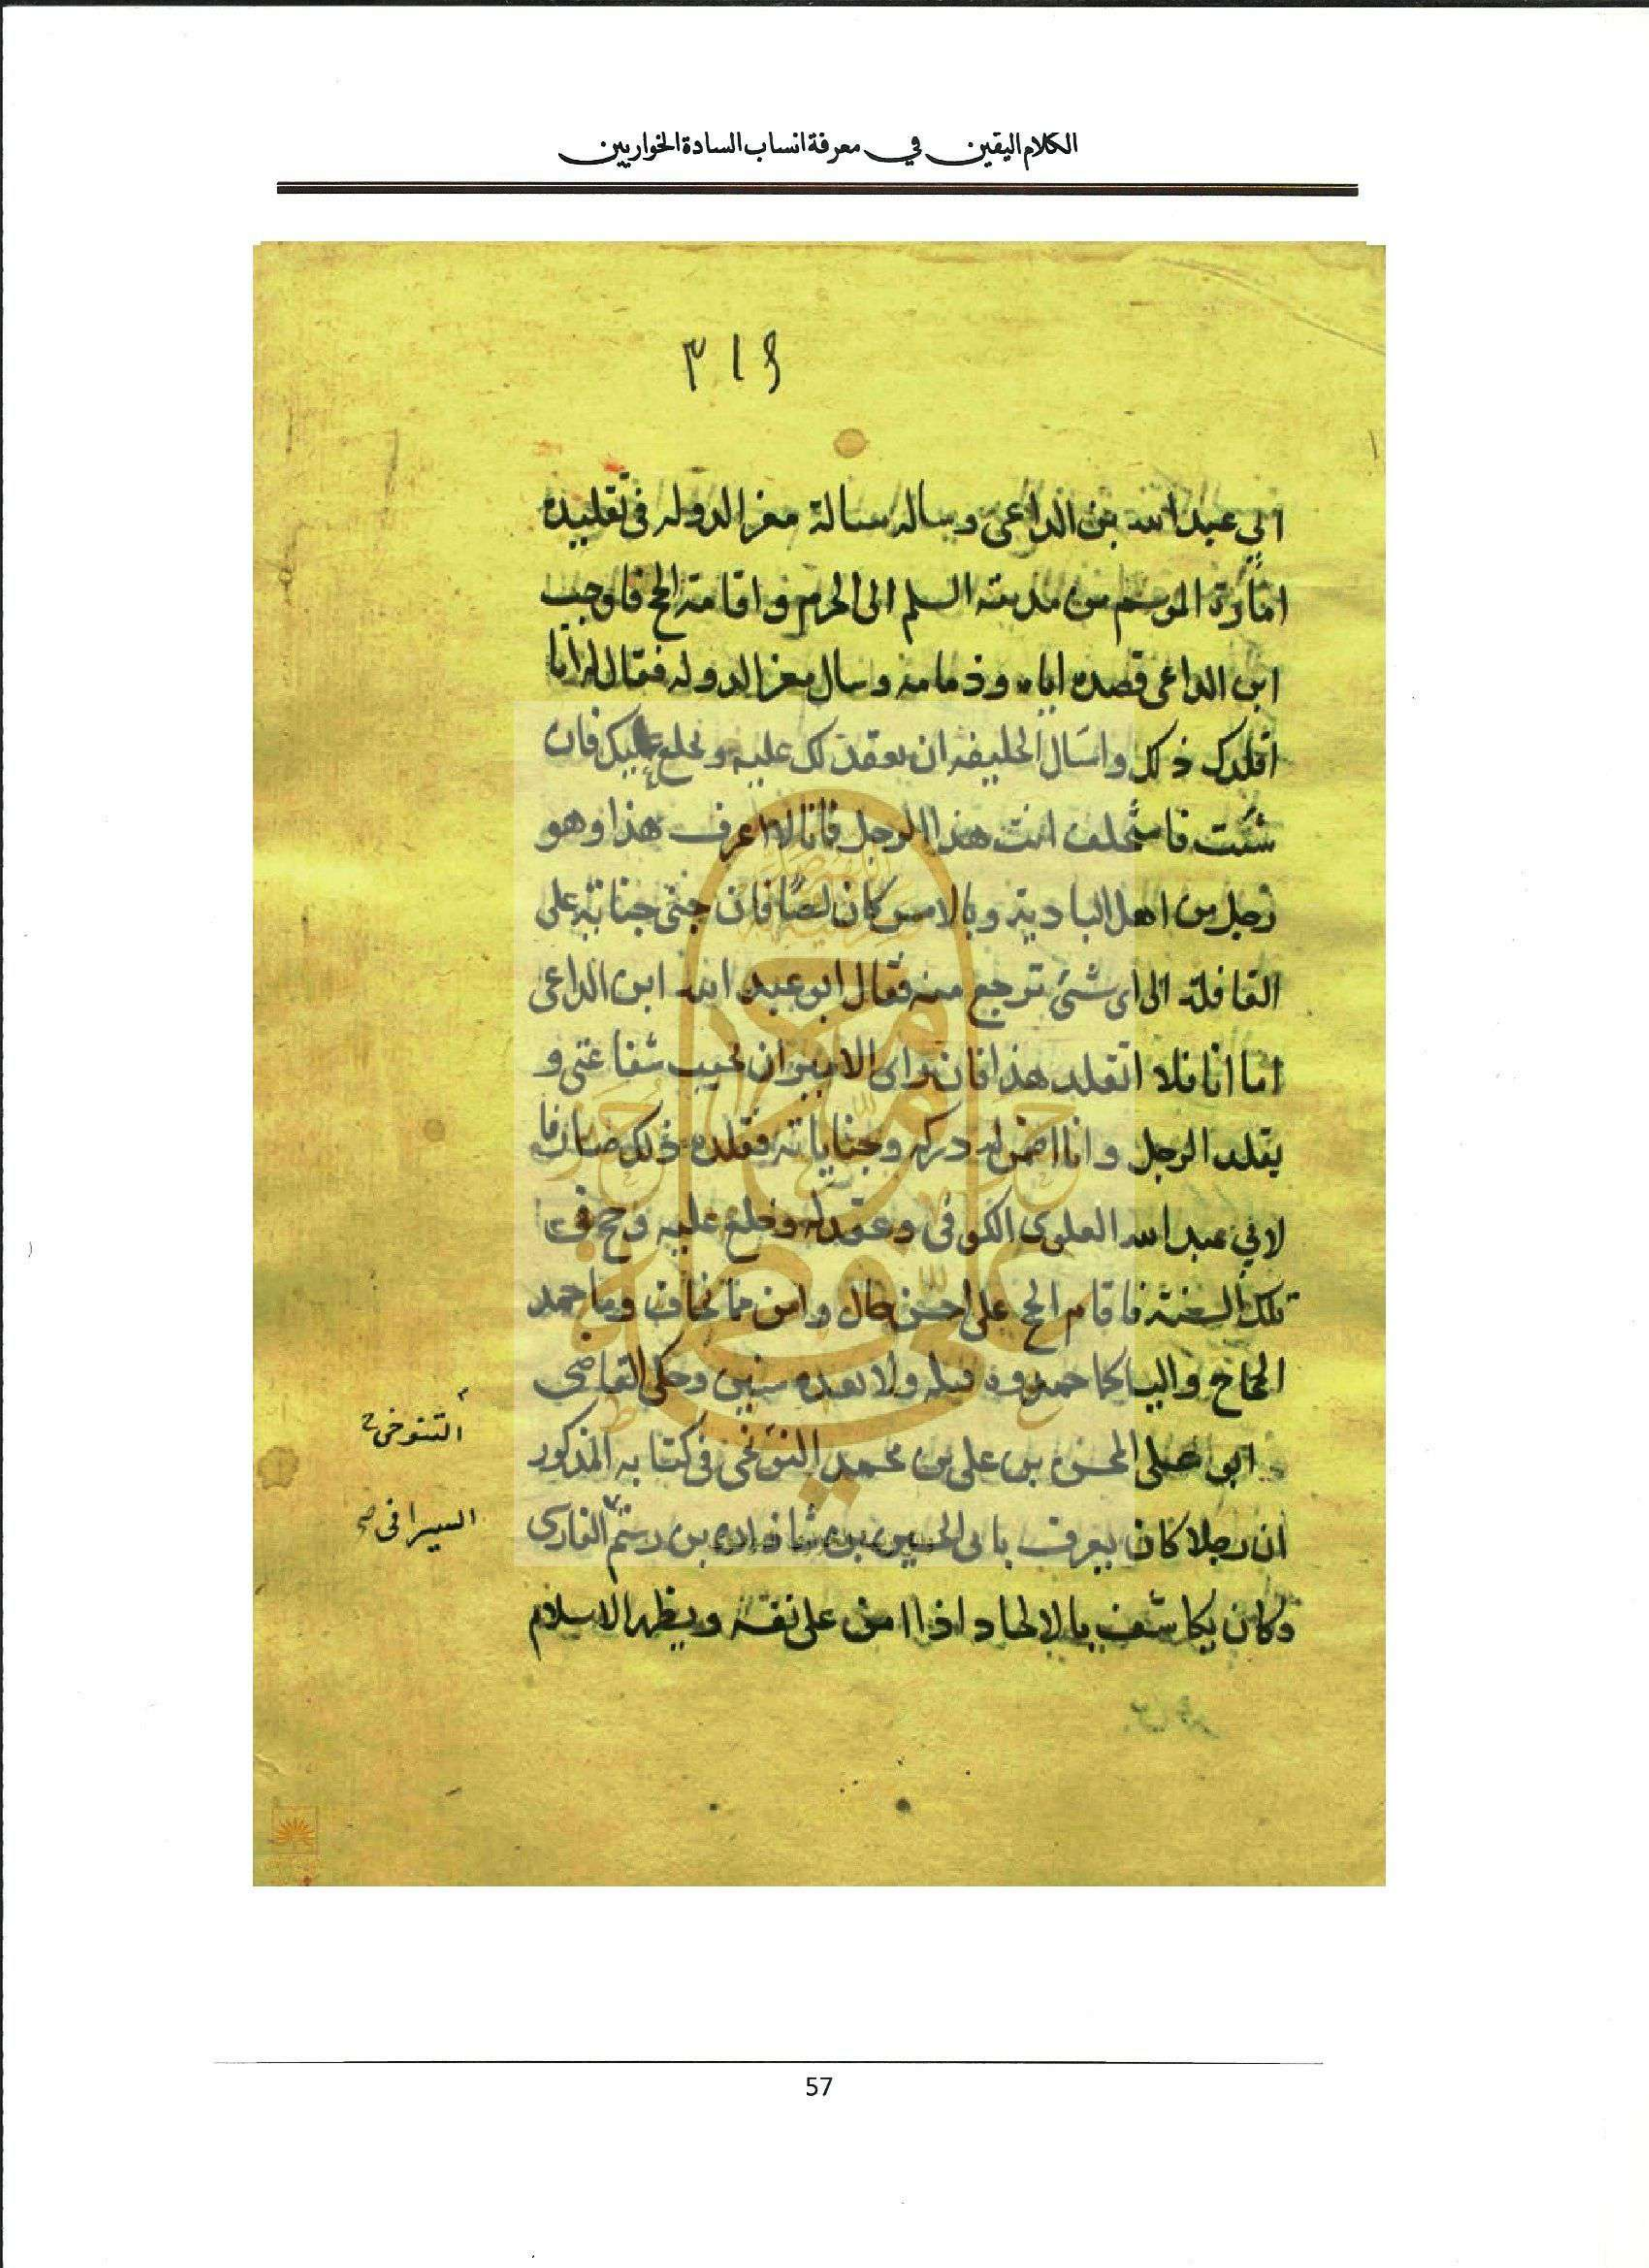 الكلام اليقين في معرفة انساب السادة الخواريين
٣١٩
ابي عبدالله بن الداعى وساله مسالة معز الدوله فى تقليده
امارة الموسم من مدينة السلم الى الحرم واقامة الحج فاوجب
ابن الداعى قصده اياه وذمامه وسال معز الدوله فقال له انا
اقلدك ذلك واسال الخليفه ان يعقد لك عليه ويخلع عليك فان
شئت فاستخلف انت هذا الرجل فانا لا اعرف هذا وهو
رجل من اهل البادية وبالامس كان لصًا فان جنى جناية على
القافلة الى اى شئ نرجع منه فقال ابو عبد الله ابن الداعى
اما انا فلا اتقلد هذا فان راى الامير ان يجيب شفاعتى و
يقلد الرجل وانا اضمن له دركه وجناياته فقلده ذلك مضافا
لابي عبد الله العلوى الكوفى وعقد له وخلع عليه وحج فى
تلك السنة فاقام الحج على احسن حال وامن مما يخاف وما حمد
الحاج واليا كما حمدوه قبله ولا بعده سنين وحكى القاضى
التنوخى
ابو على المحسن بن على بن محمد التنوخى فى كتابه المذكور
السيرافى صح
ان رجلا كان يعرف بابى الحسين بن شاذان بن رستم الفارى
وكان يكاشف بالالحاد اذا امن على نفسه ويظهر الاسلام
57